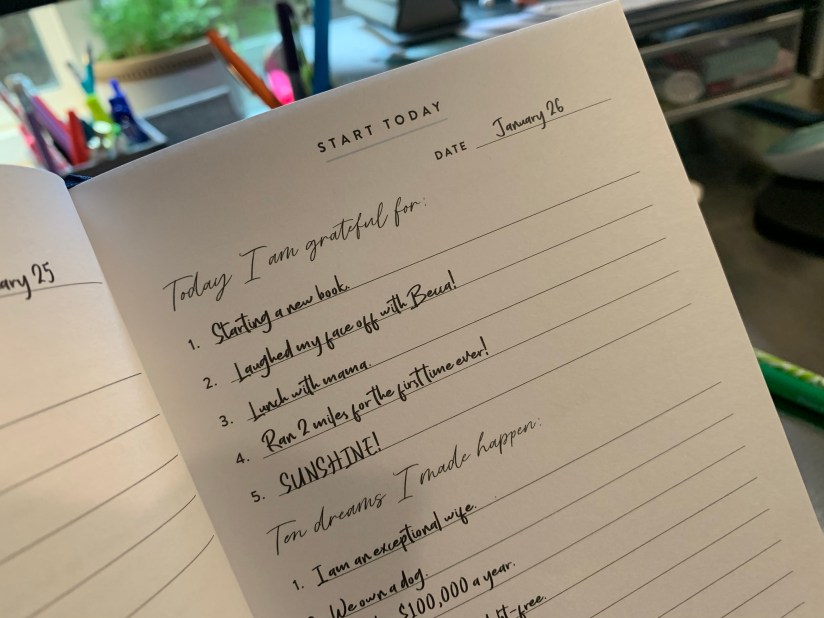 ary 25
START TODAY
DATE January 26
Today I am grateful for:
1. Starting a new book.
2. Laughed my face off with Becca!
3. Lunch with mama.
4. Ran 2 miles for the first time ever!
5. SUNSHINE!
Ten dreams I made happen:
1. I am an exceptional wife.
We own a dog.
$100,000 a year.
t-free.